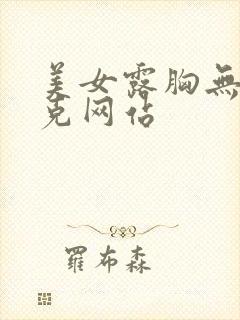 美女露胸無
克网佔
羅布森